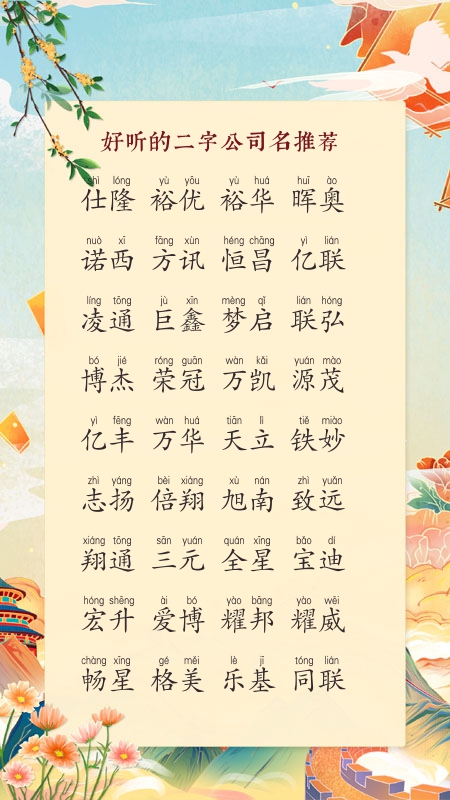 好听的二字公司名推荐
shì lóng yù yōu yù huá huī ào
仕隆 裕优 裕华 晖奥
nuò xī fāng xùn héng chāng yì lián
诺西 方讯 恒昌 亿联
líng tōng jù xīn mèng qǐ lián hóng
凌通 巨鑫 梦启 联弘
bó jié róng guān wàn kǎi yuán mào
博杰 荣冠 万凯 源茂
yì fēng wàn huá tiān lì tiě miào
亿丰 万华 天立 铁妙
zhì yáng bèi xiáng xù nán zhì yuǎn
志扬 倍翔 旭南 致远
xiáng tōng sān yuán quán xīng bǎo dí
翔通 三元 全星 宝迪
hóng shēng ài bó yào bāng yào wēi
宏升 爱博 耀邦 耀威
chàng xīng gé měi lè jī tóng lián
畅星 格美 乐基 同联